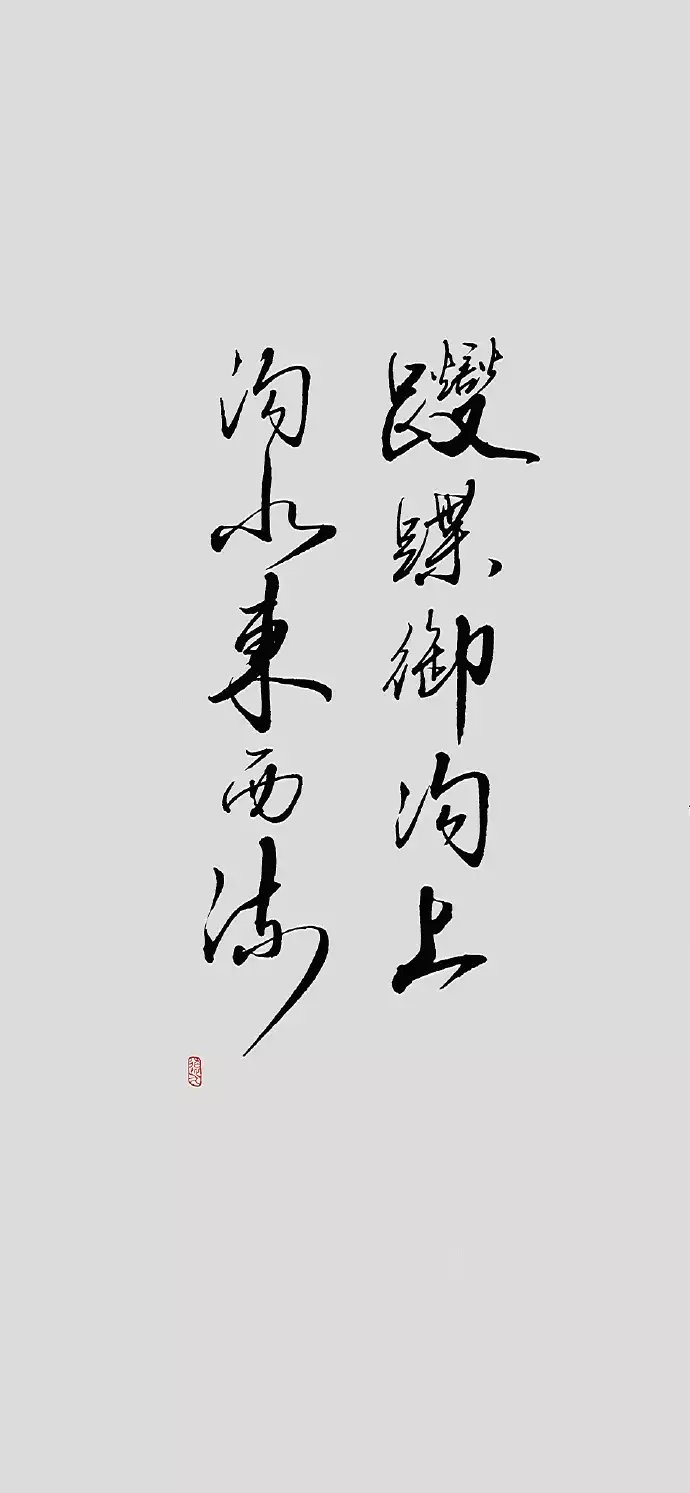 躞蹀御沟上
沟水東西流